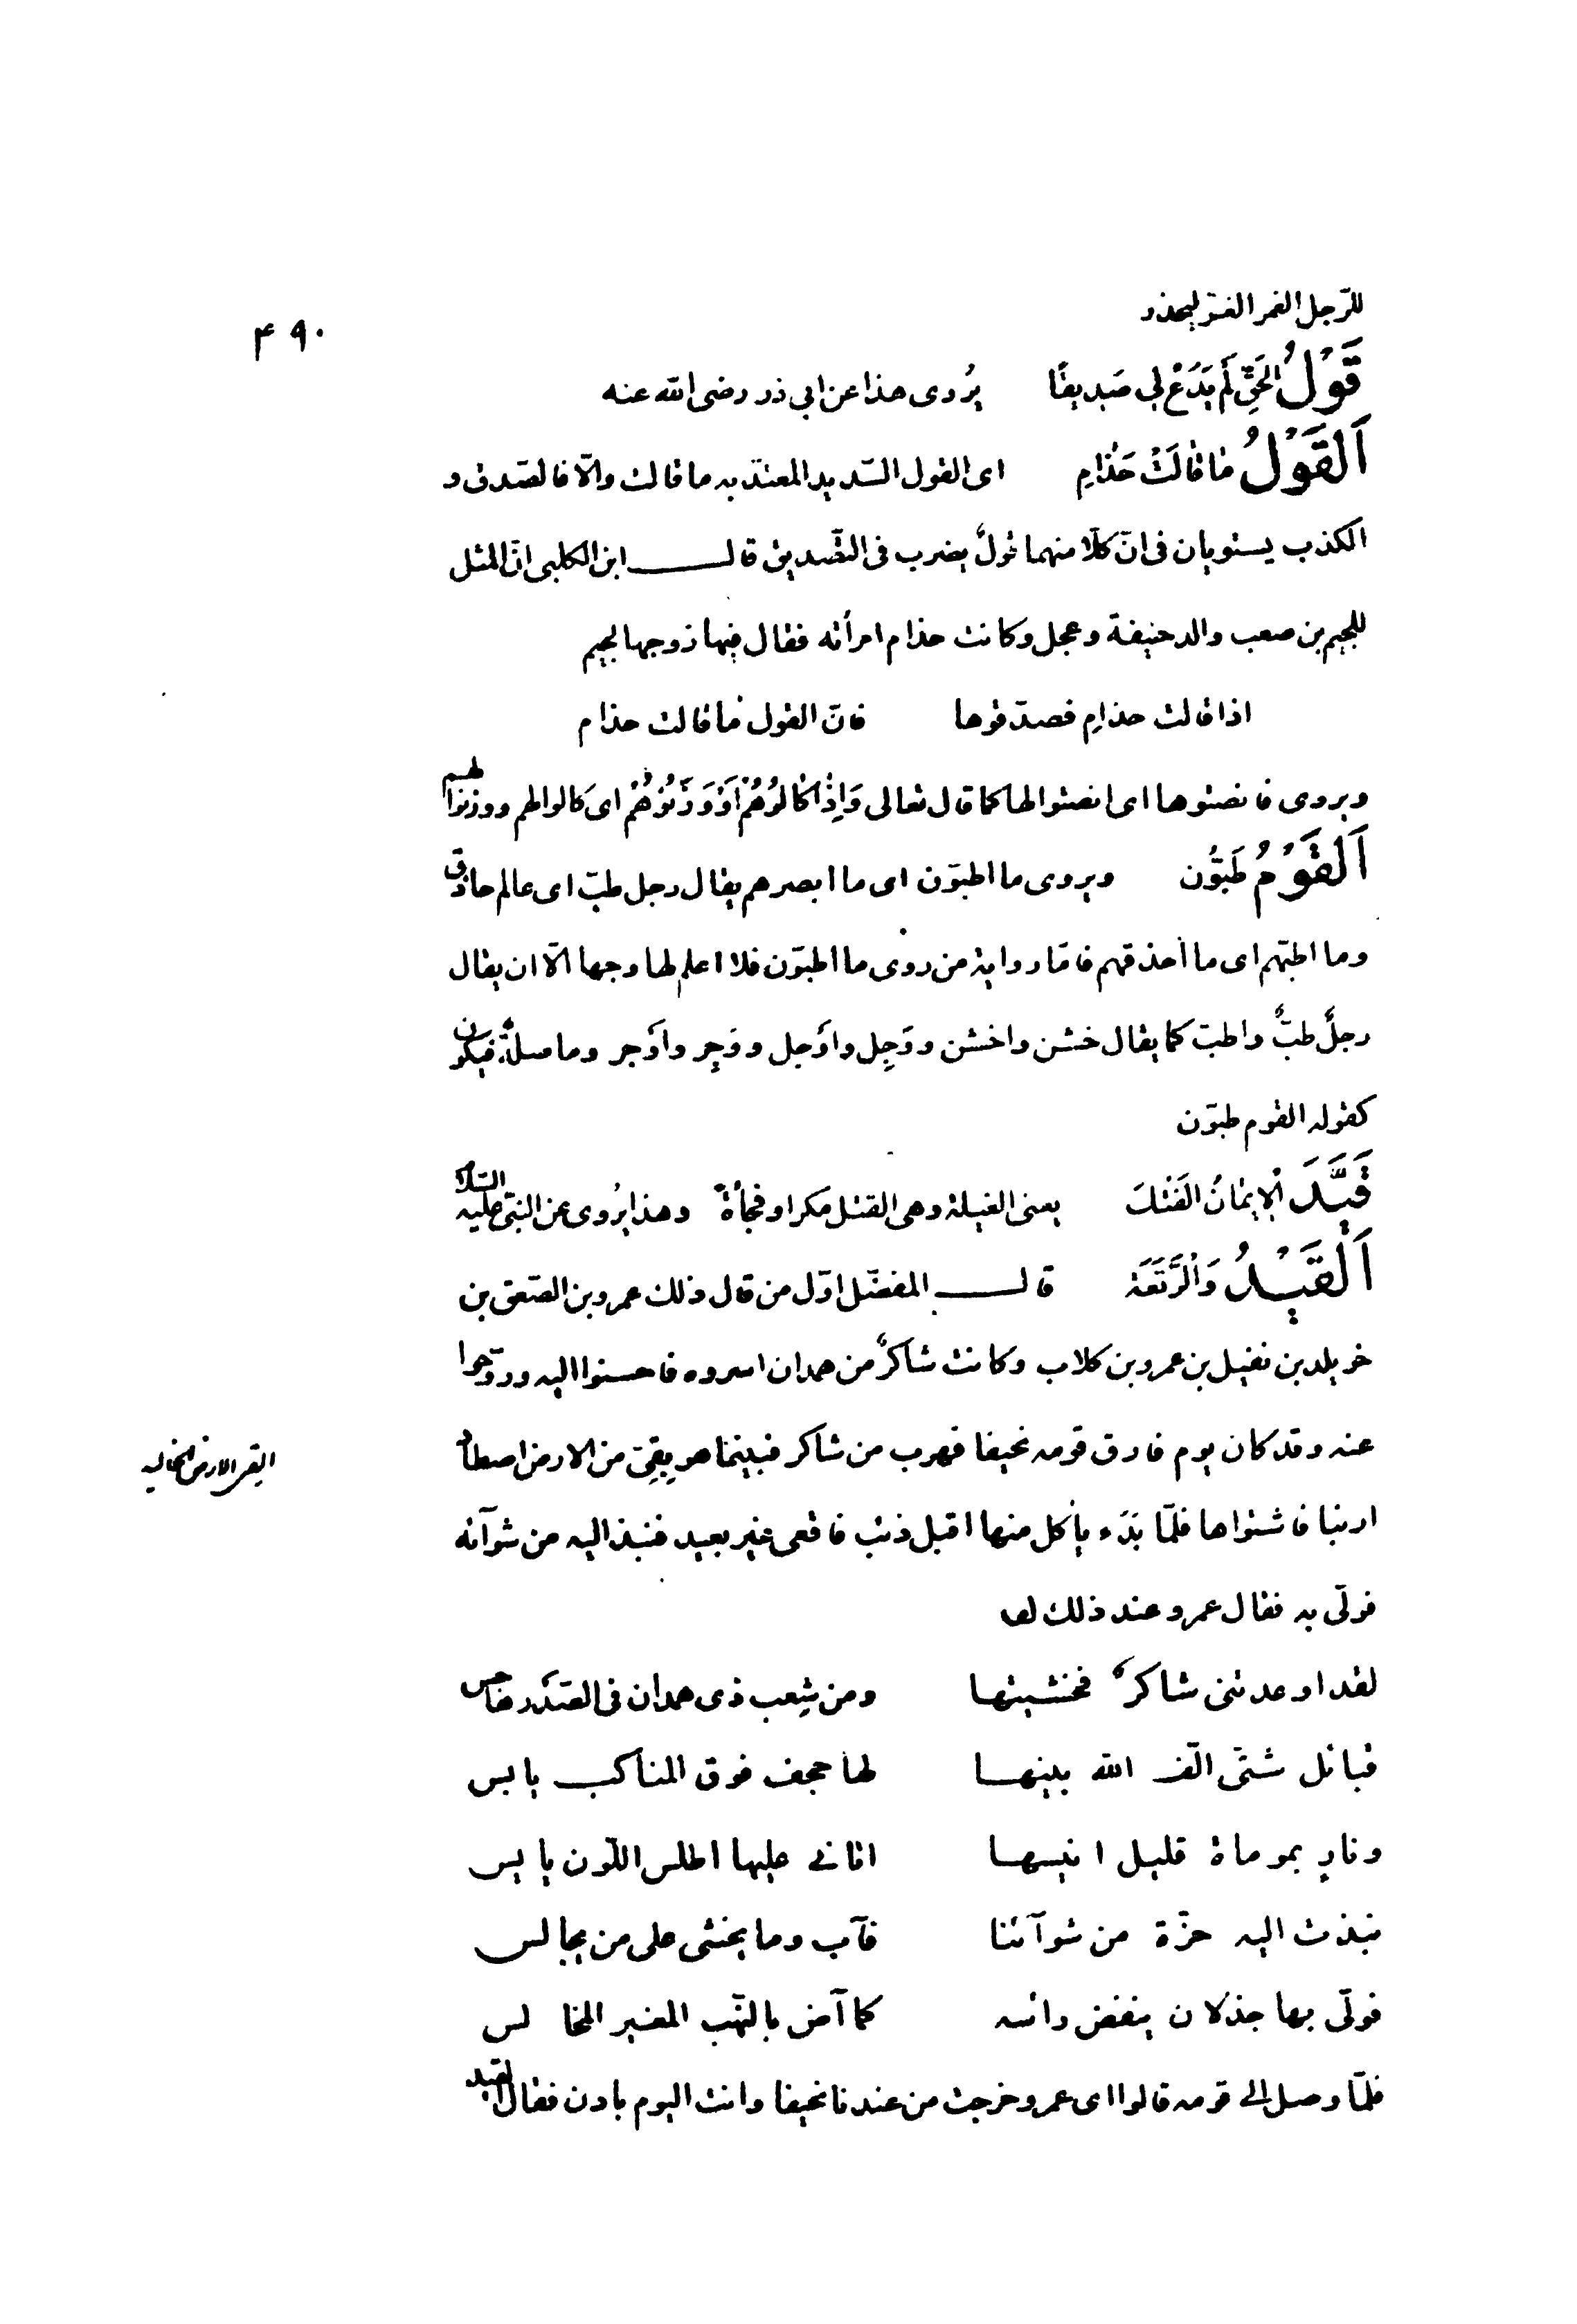 ۴۹۰
للرّجل الغمر الغرّ ليحذر
قَوْلُ الحَقِّ لَمْ يَدَعْ لِي صَدِيقًا يُروى هذا عن ابي ذر رضى الله عنه
اَلْقَوْلُ مَا قَالَتْ حَذَامِ اى القول السّديد المعتدّ به ما قالت والّا فالصّدق و
الكذب يستويان فى انّ كلّا منهما قولٌ يضرب فى التّصديق قال ابن الكلبى انّ المثل
للجيم بن صعب والد حنيفة وعجل وكانت حذام امرأته فقال فيها زوجها لجيم
اذا قالت حذامِ فصدّقوها فانّ القول ما قالت حذام
ويروى فانصتوها اى انصتوا لها كما قال تعالى وَاِذَا كَالُوهُمْ اَوْ وَزَنُوهُمْ اى كالوا لهم ووزنوا لهم
اَلْقَوْمُ طَبُّون ويروى ما اطبّون اى ما ابصرهم يقال رجل طبّ اى عالم حاذق
وما اطبّهم اى ما أحذقهم فامّا رواية من روى ما اطبّون فلا اعلم لها وجها الّا ان يقال
رجلٌ طبٌّ واطبّ كما يقال خشن واخشن ووَجِل واَوجل ووَجِر واَوجر وما صلةٌ فيكون
كقوله القوم طبّون
قَيَّدَ الْإِيمَانُ الْفَتْكَ يعنى الغيلة وهى القتل مكرا وفجأةً وهذا يُروى عن النبّى عليه السّلام
اَلْقَيْدُ وَالرَّتَعَة قال المفضّل اوّل من قال ذلك عمرو بن الصّعق بن
خويلد بن نفيل بن عمرو بن كلاب وكانت شاكرٌ من همدان اسروه فاحسنوا اليه وروّحوا
عنه وقد كان يوم فارق قومه نحيفا فهرب من شاكر فبينما هو بقِىّ من الارض اصطاد
القى الارض الخاليه
ارنبا فاشتواها فلمّا بَدَء يأكل منها اقبل ذئب فاقعى غير بعيد فنبذ اليه من شوآئه
فولّى به فقال عمرو عند ذلك
لقد اوعدتنى شاكرٌ فخشيتها ومن شِعب ذى همدان فى الصّدر هاجس
قبائل شتّى الّف الله بينها لها حجف فوق المناكب يابس
ونارٍ بموماة قليل انيسها اتانى عليها اطلس اللّون يايس
نبذت اليه حزّة من شوآئنا فآب وما يخشى على من يجالس
فولّى بها جذلان ينفض رأسه كما آض بالنّهب المغير المخالس
فلمّا وصل الى قومه قالوا اى عمرو خرجت من عندنا نحيفا وانت اليوم بادن فقال القيد